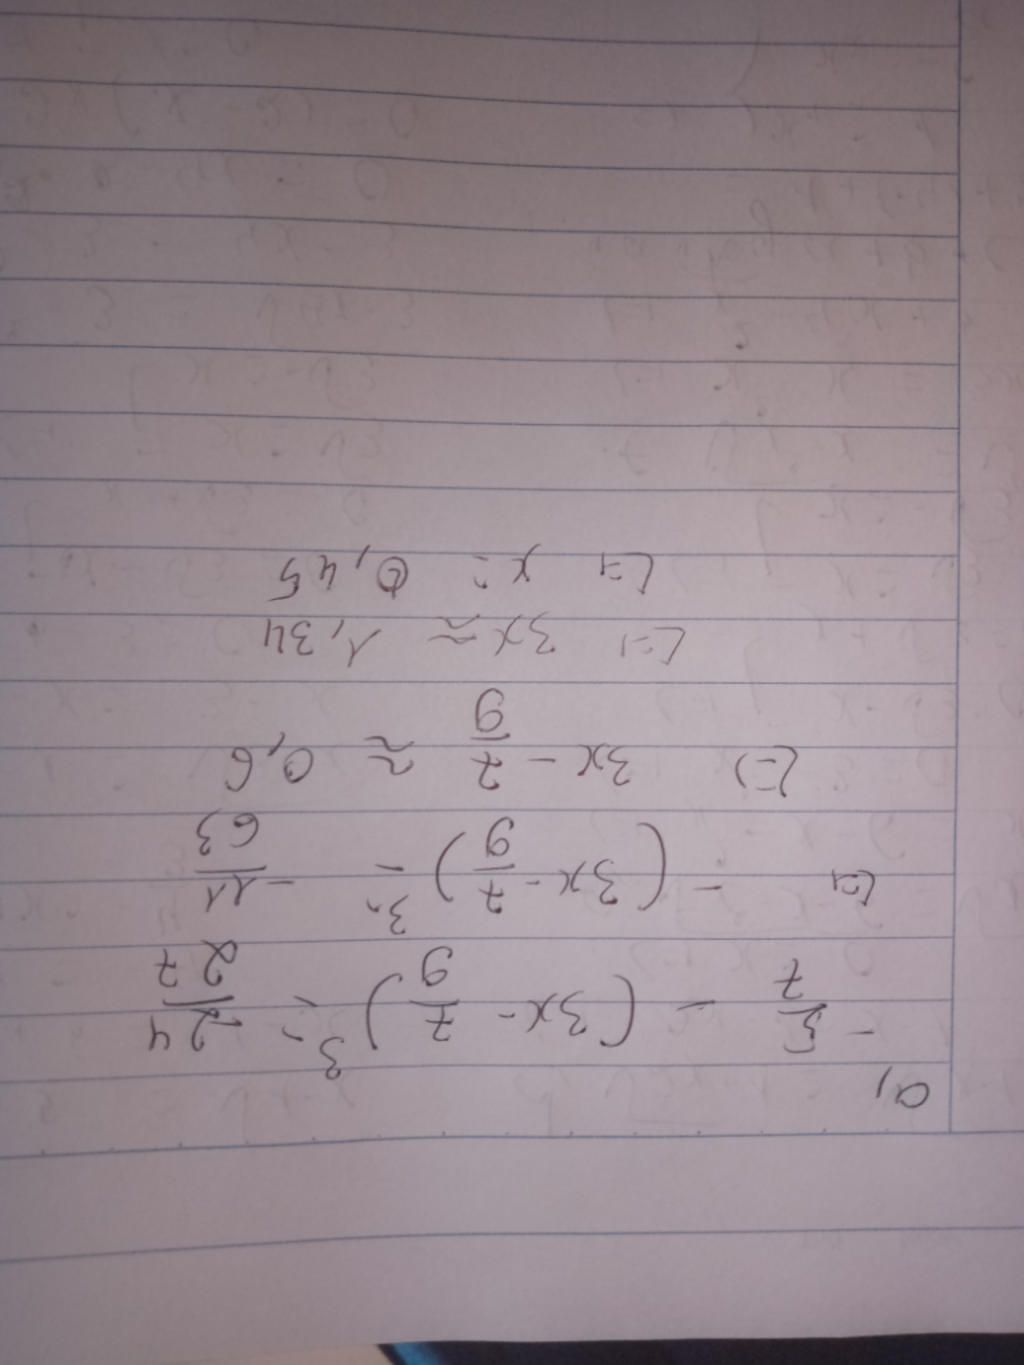 a,
- 5/7 - (3x - 7/9)³ = -24/27
<=> - (3x - 7/9)³ = -11/63
<=> 3x - 7/9 ≈ 0,6
<=> 3x ≈ 1,34
<=> x = 0,45